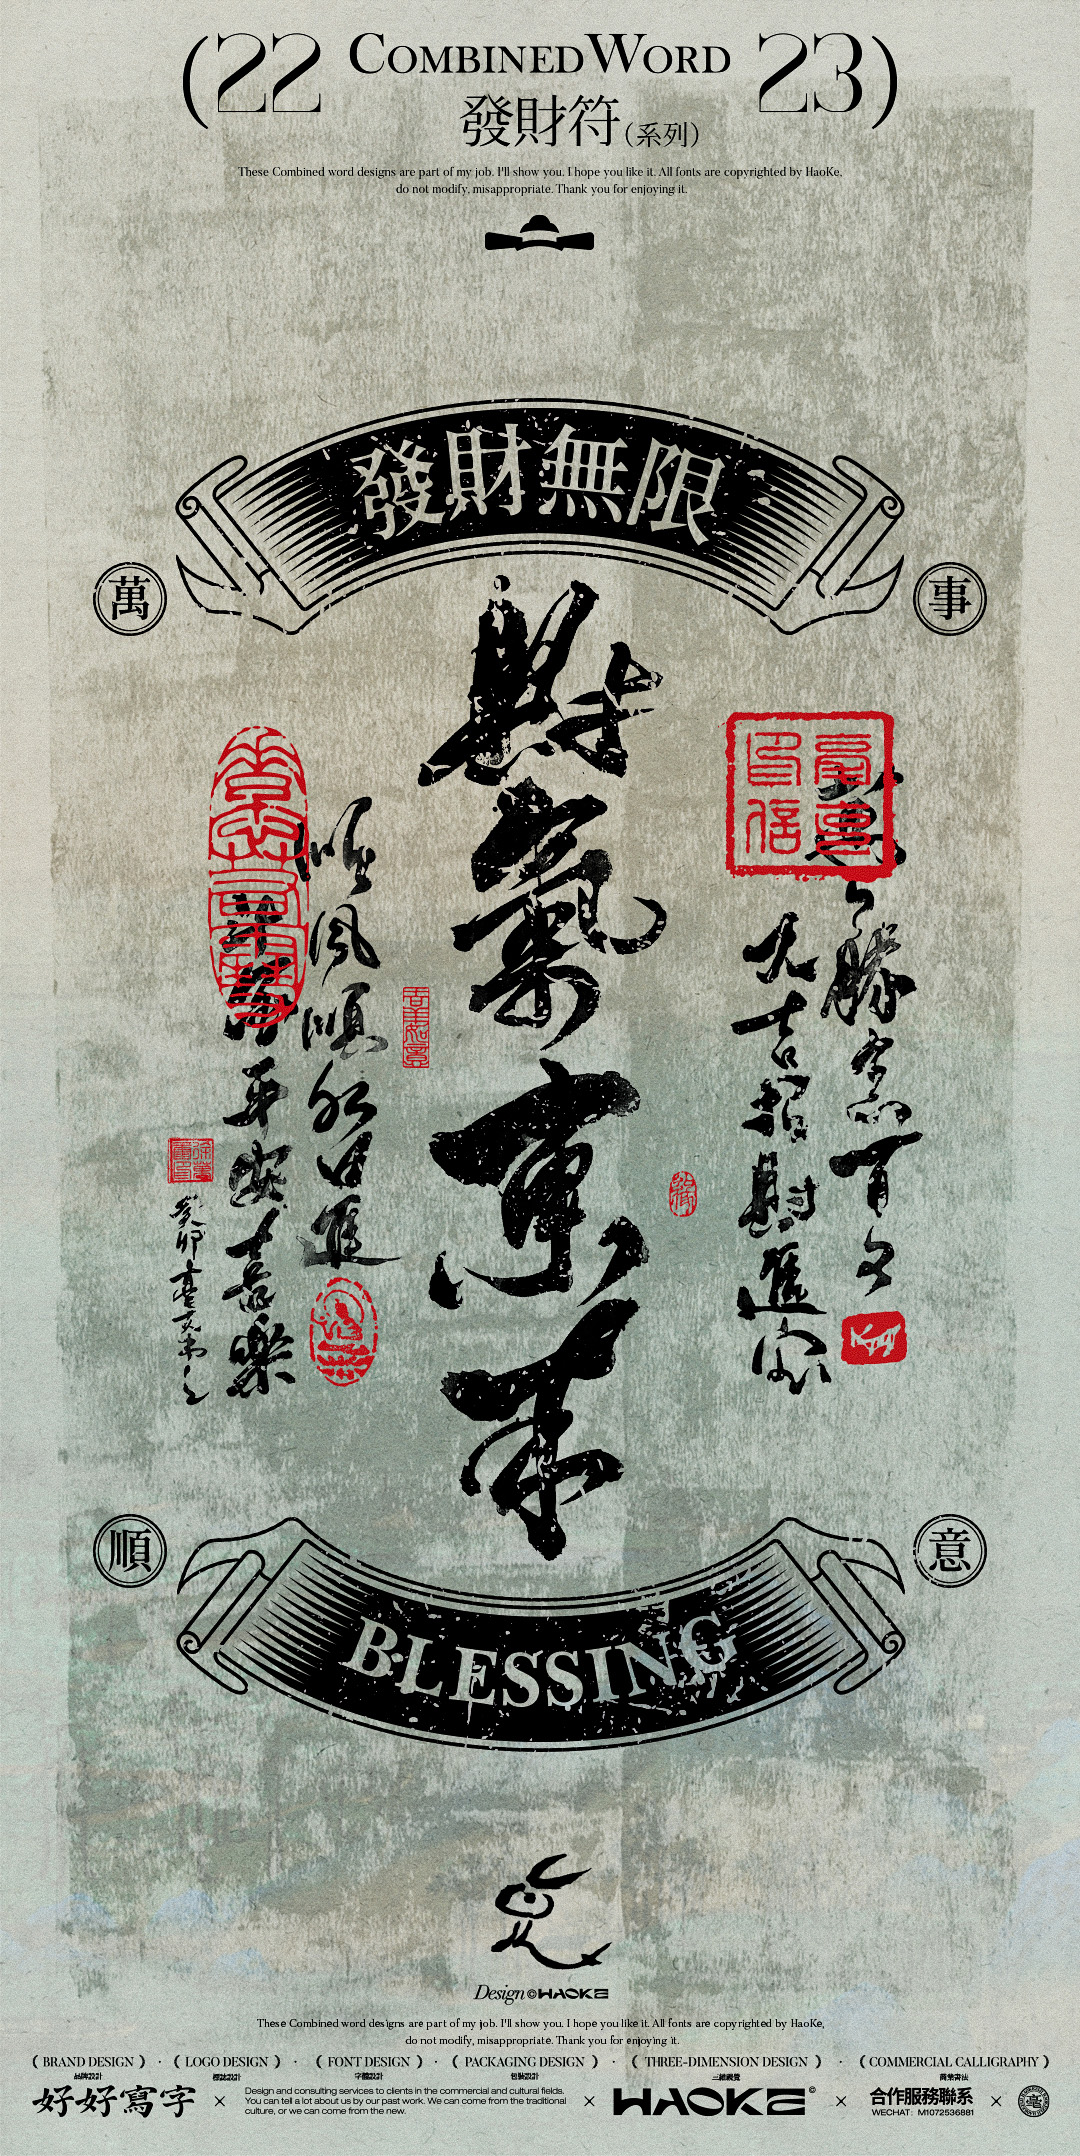 (22 COMBINED WORD 23)
發財符(系列)
These Combined word designs are part of my job. I'll show you. I hope you like it. All fonts are copyrighted by HaoKe,
do not modify, misappropriate. Thank you for enjoying it.
發財無限
萬
事
財氣東來
大吉招財進寶
順風順水日進
平安喜樂
順
意
BLESSING
Design©HAOKE
These Combined word designs are part of my job. I'll show you. I hope you like it. All fonts are copyrighted by HaoKe,
do not modify, misappropriate. Thank you for enjoying it.
( BRAND DESIGN ) · ( LOGO DESIGN ) · ( FONT DESIGN ) · ( PACKAGING DESIGN ) · ( THREE-DIMENSION DESIGN ) · ( COMMERCIAL CALLIGRAPHY )
品牌設計 標誌設計 字體設計 包裝設計 三維視覺 商業書法
好好寫字
Design and consulting services to clients in the commercial and cultural fields.
You can tell a lot about us by our past work. We can come from the traditional
culture, or we can come from the new.
HAOKE©
合作服務聯系
WECHAT: M1072536881